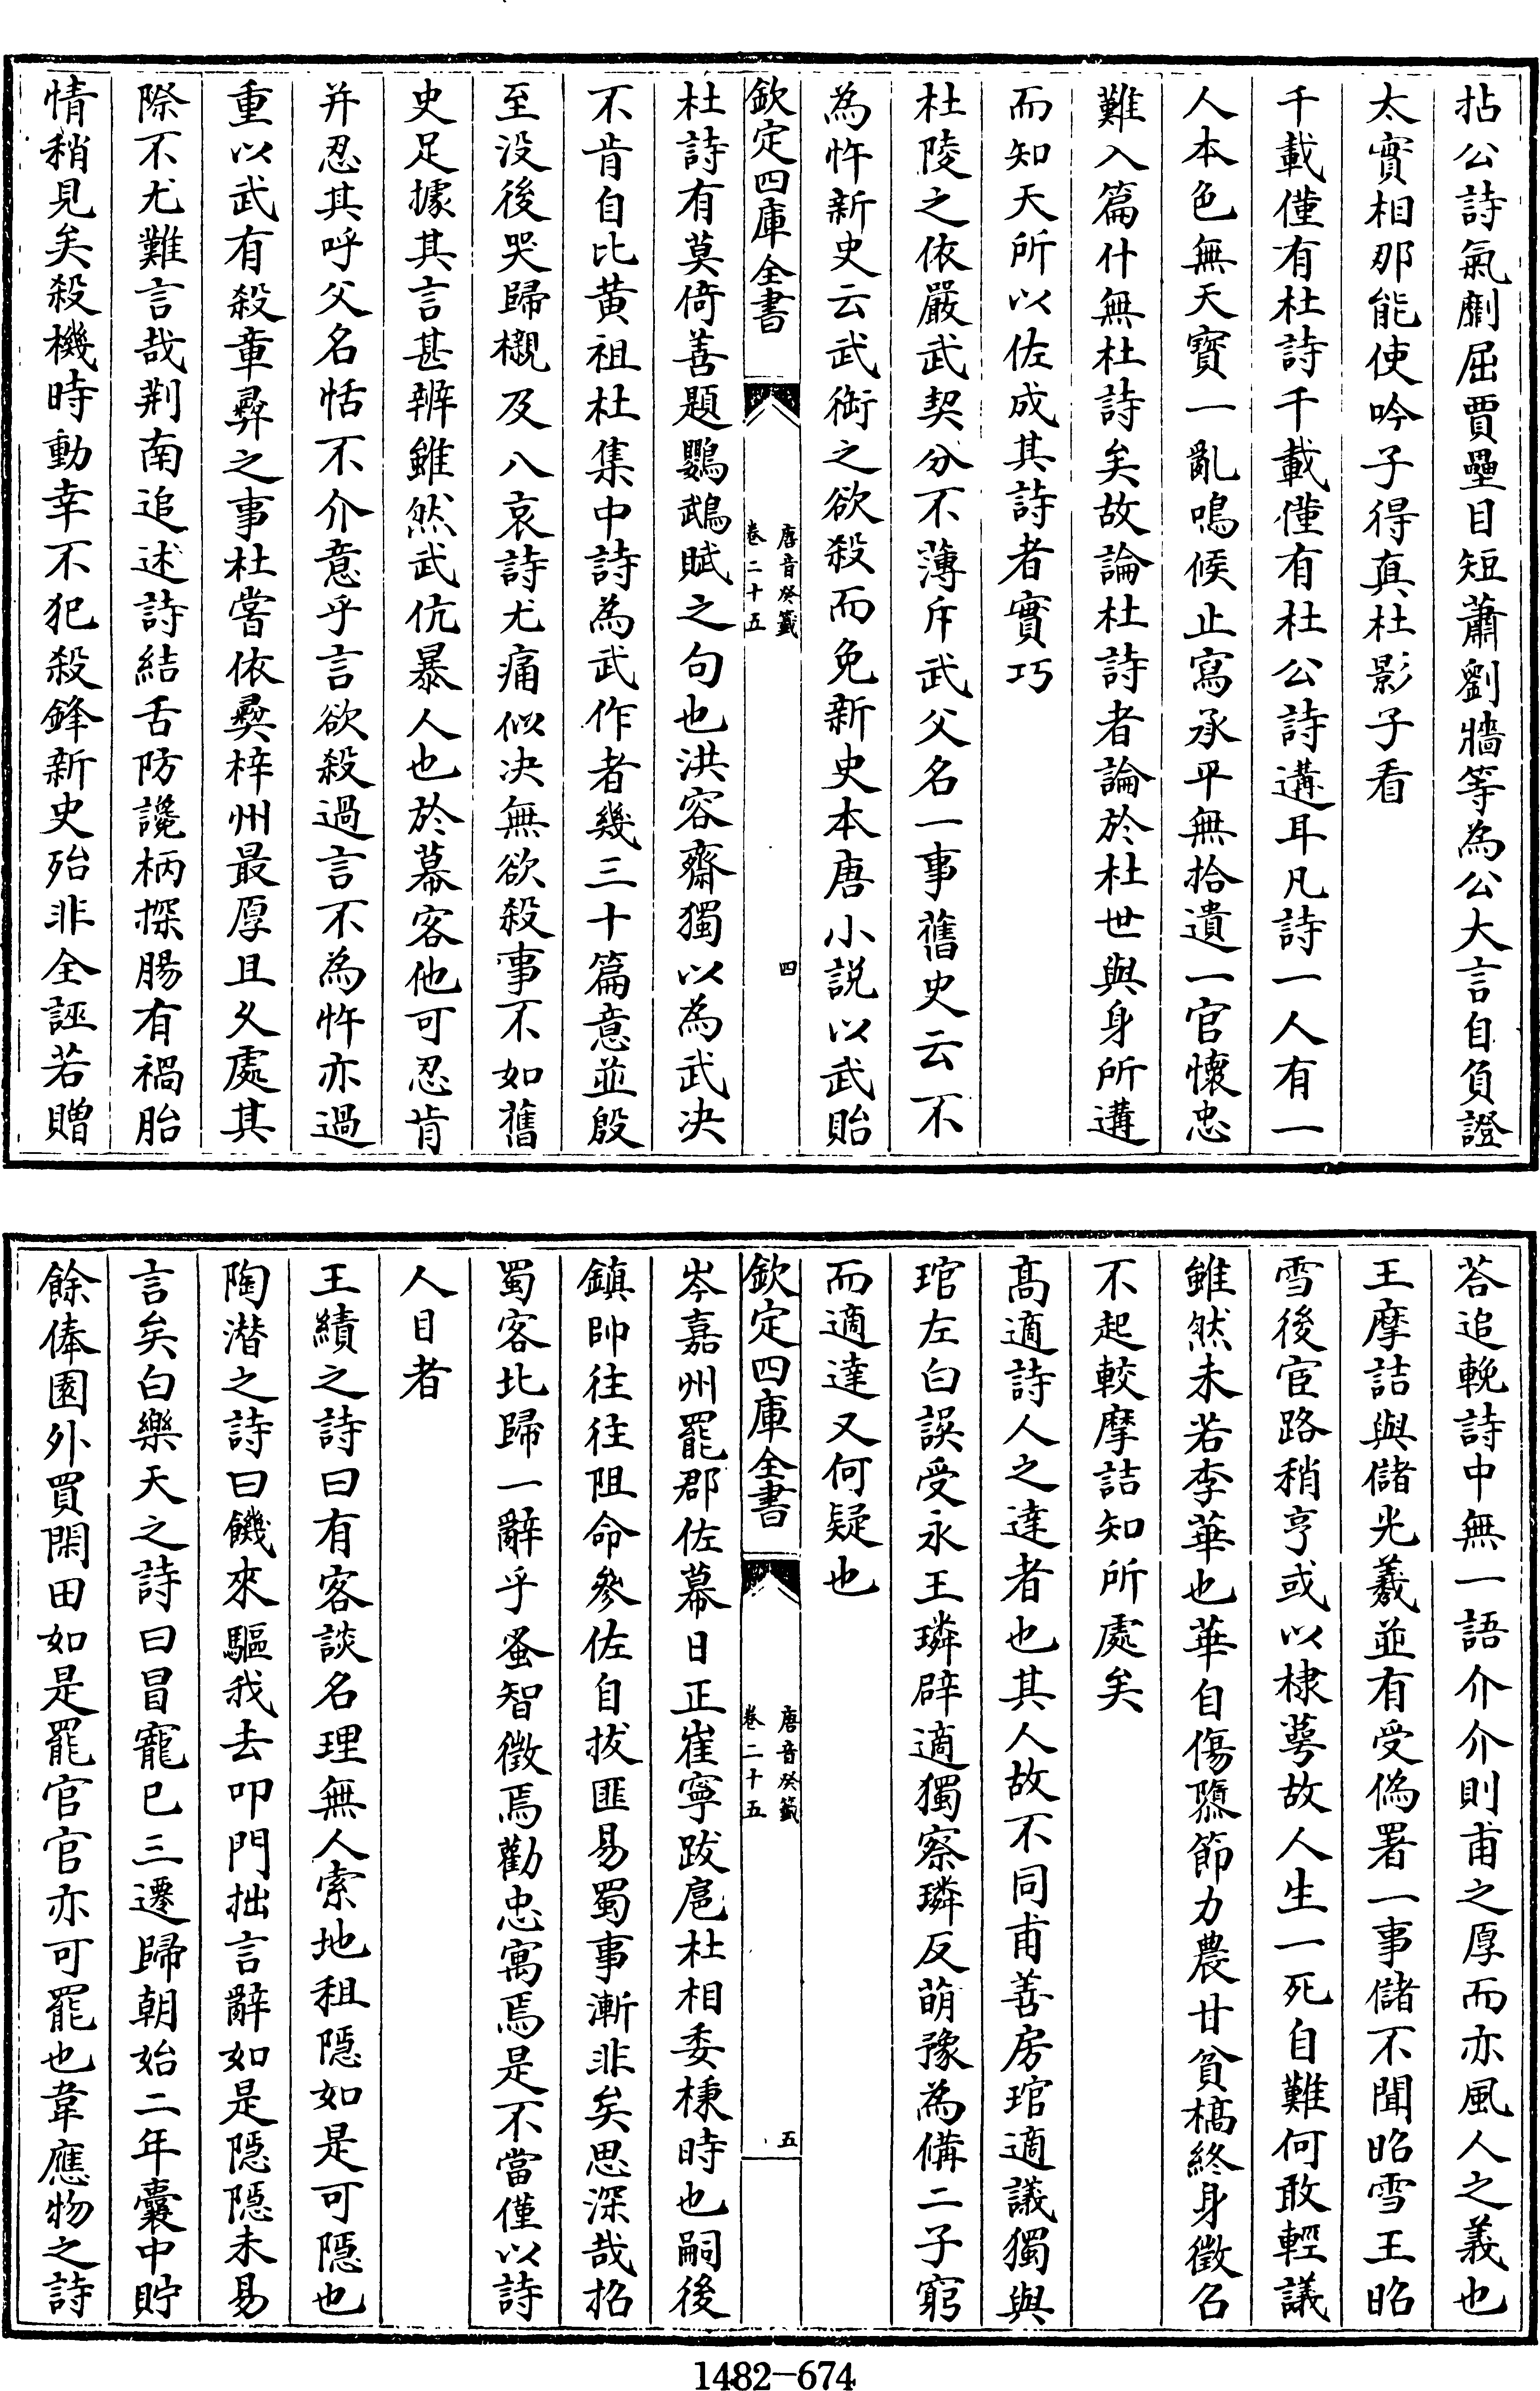 拈公詩氣劘屈賈壘目短蕭劉牆等為公大言自負證
太實相那能使吟子得真杜影子看
千載僅有杜詩千載僅有杜公詩遘耳凡詩一人有一
人本色無天寳一亂鳴候止寫承平無拾遺一官懷忠
難入篇什無杜詩矣故論杜詩者論於杜世與身所遘
而知天所以佐成其詩者實巧
杜陵之依嚴武契分不薄斥武父名一事舊史云不
為忤新史云武銜之欲殺而免新史本唐小說以武貽
欽定四庫全書
唐音癸籤
卷二十五
四
杜詩有莫倚善題鸚鵡賦之句也洪容齋獨以為武决
不肯自比黄祖杜集中詩為武作者幾三十篇意並殷
至没後哭歸櫬及八哀詩尤痛似决無欲殺事不如舊
史足據其言甚辨雖然武伉暴人也於幕客他可忍肯
并忍其呼父名恬不介意乎言欲殺過言不為忤亦過
重以武有殺章彞之事杜嘗依彞梓州最厚且久處其
際不尤難言哉荆南追述詩結舌防讒柄探腸有禍胎
情稍見矣殺機時動幸不犯殺鋒新史殆非全誣若贈
荅追輓詩中無一語介介則甫之厚而亦風人之義也
王摩詰與儲光羲並有受偽署一事儲不聞昭雪王昭
雪後宦路稍亨或以棣萼故人生一死自難何敢輕議
雖然未若李華也華自傷隳節力農甘貧槁終身徵召
不起較摩詰知所處矣
髙適詩人之達者也其人故不同甫善房琯適議獨與
琯左白誤受永王璘辟適獨察璘反萌豫為備二子窮
而適達又何疑也
欽定四庫全書
唐音癸籤
卷二十五
五
岑嘉州罷郡佐幕日正崔寧跋扈杜相委棟時也嗣後
鎮帥往往阻命參佐自拔匪易蜀事漸非矣思深哉招
蜀客北歸一辭乎蚤智徵焉勸忠寓焉是不當僅以詩
人目者
王績之詩曰有客談名理無人索地租隠如是可隠也
陶潛之詩曰饑來驅我去叩門拙言辭如是隠隠未易
言矣白樂天之詩曰冒寵已三遷歸朝始二年囊中貯
餘俸園外買閑田如是罷官官亦可罷也韋應物之詩
1482-674